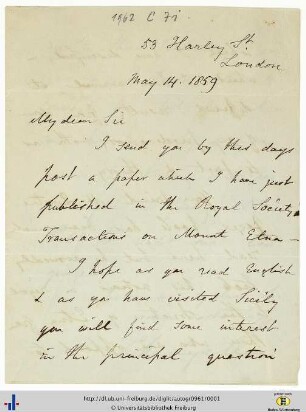 1962 C 71
53 Harley St.
London
May 14. 1859
My dear Sir
I send you by this days
post a paper which I have just
published in the Royal Society
Transactions on Mount Etna—
I hope as you read English
& as you have visited Sicily
you will find some interest
in the principal question
http://dl.ub.uni-freiburg.de/diglit/autogr0961/0001
© Universitätsbibliothek Freiburg